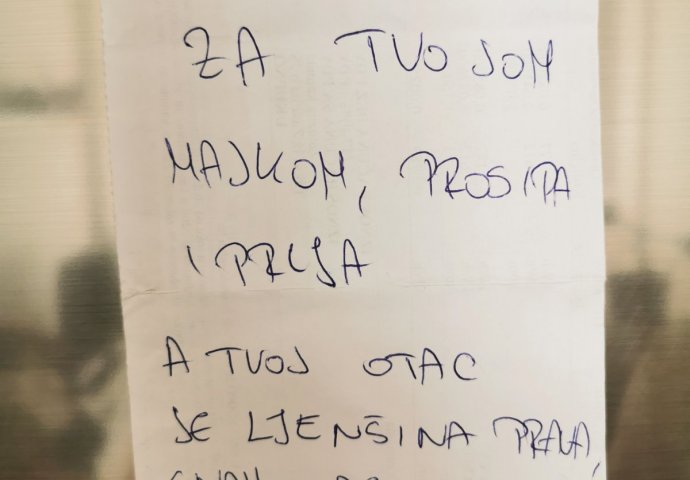 ZA TVOJOM
MAJKOM, PROSIPA
I PRLJA
A TVOJ OTAC
JE LJENŠINA PRAVA,